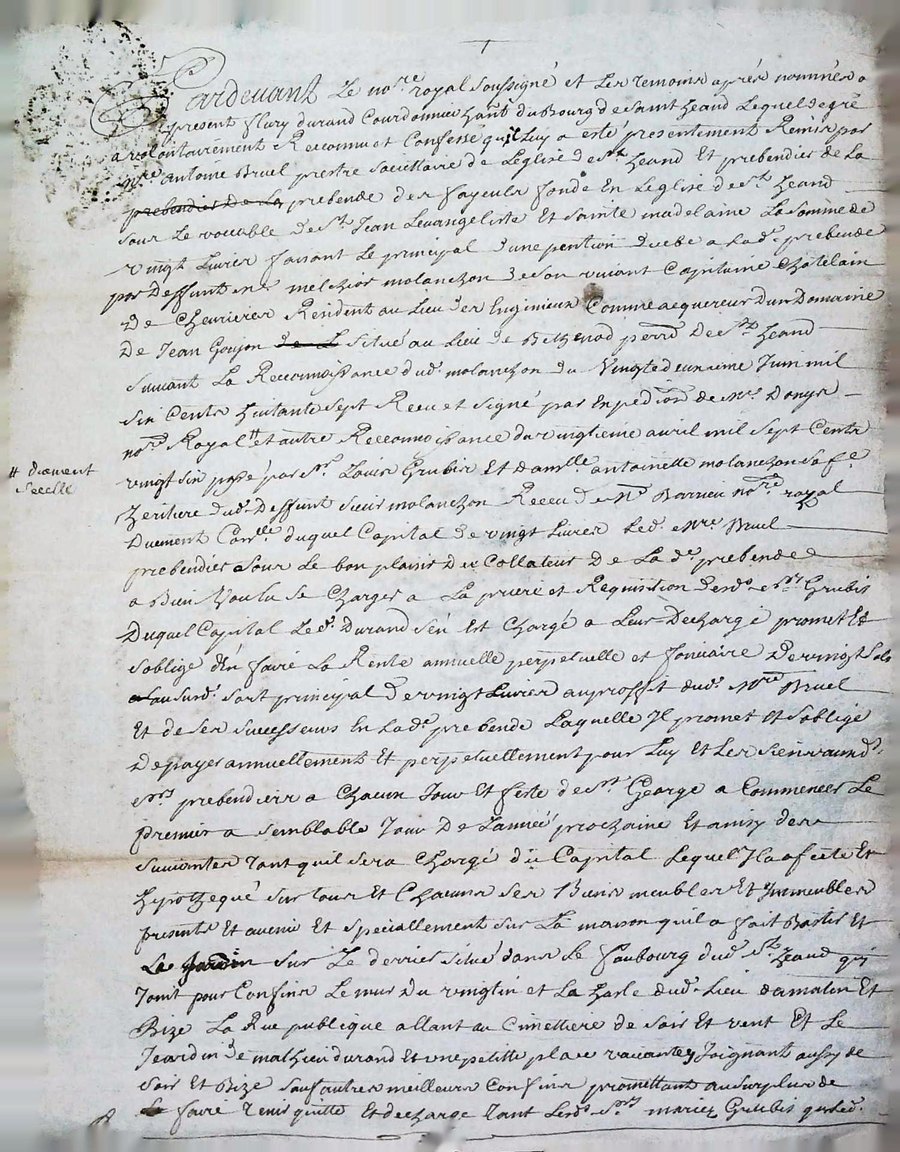 Pardevant Le no.re royal soussigné et Les temoins aprés nommés a
present fleury durand Courdonnier ha.nt du Bourg de saint heand Lequel de gré
a volontairement Reconnu et Confessé quil Luy a esté presentement Remis par
m.re antoine Bruel prestre societtaire de Leglise de s.t heand Et prebendier de La
prebendier De La prebende des fayeuls fondé En Leglise de s.t heand
sous Le vocable de s.t Jean Levangeliste Et sainte madelaine La somme de
vingt Livres faisant Le principal dune pention deube a lad.e prebende
par Deffunt m.re melchior molanchon de son vivant Capitaine Chatelain
De Chevrieres Resident au Lieu des Enginieux Comme acquereur Dun Domaine
De Jean Goujon de L situé au Lieu de parr.e De s.t heand
suivant La Reconnoissance dud. molanchon du Vingtdeuxieme Juin mil
six Cents huitante sept Receu et signé par Expedi.on de m.re Donys
no.re Royal # et autre Reconnoissance du vingtieme avril mil sept Cents
# duement
scellé
vingt six passé par s.r Louis Grubis Et dam.lle antoinette molanchon sa f.e
heritiere dud. Deffunt sieur molanchon Receu de m.e Barrieu no.re royal
Duement Con.llé duquel Capital de vingt Livres Led. m.re Bruel
prebendier sous Le bon plaisir du Collateur De La d.e prebende
a Bien Voulu se Charger a La priere et Requisition desd. s.rs Grubis
Duquel Capital Led. Durand sen Est Chargé a Leur Decharge promet Et
soblige den faire La Rente annuelle perpetuelle et fonciaire De vingt sols
ausurd. sort principal De vingt Livres au proffit dud. m.re Bruel
Et de ses successeurs En lad.e prebende Laquelle Il promet Et soblige
De payer annuellement Et perpetuellement pour Luy Et Les siens
prebendiers a Chacun Jour Et feste de s.t George a Commencer Le
premier a semblable Jour De Lannée prochaine Et ainsy des
suivantes Tant quil sera Chargé du Capital Lequel Il a afecté Et
hypothequé sur tous Et Chacuns ses Biens meubles Et Immeubles
presents Et avenir Et speciallement sur La maison quil a fait Bastir Et
Le Jardin sur Le derrier situé dans Le faubourg dud. s.t heand qui
Joint pour Confins Le mur du vingtin et La harle dud. Lieu de matin Et
Bize La Rue publique allant au Cimettiere de soir Et vent Et Le
Jeardin de mathieu durand Et une petitte place vacante y Joignant aussy de
soir Et Bize sauf autres meilleurs Confins promettant au surplus de
Le faire Tenir quitte Et decharge Tant Lesd. s.rs mariez Grubis que Led.